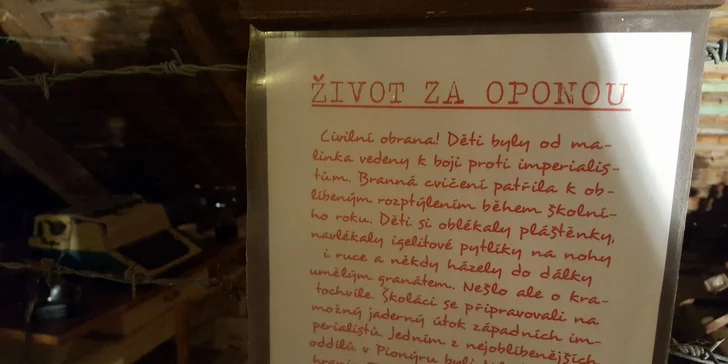 ŽIVOT ZA OPONOU
Civilní obrana! Děti byly od ma-
linka vedeny k boji proti imperialis-
tům. Branná cvičení patřila k ob-
líbeným rozptýlením během školní-
ho roku. Děti si oblékaly pláštěnky,
navlékaly igelitové pytlíky na nohy
i ruce a někdy házely do dálky
umělým granátem. Nešlo ale o kra-
tochvíle. Školáci se připravovali na
možný jaderný útok západních im-
perialistů. Jedním z nejoblíbenějších
oddílů v Pionýru byli